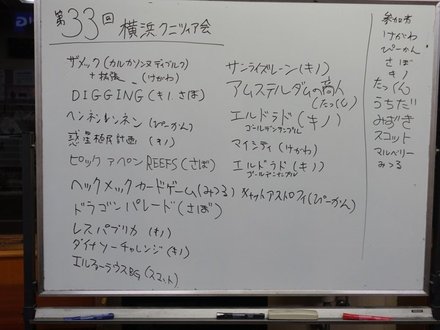 第33回 横浜クニツィア会
ザメック(カルカソンヌディブルク)
+拡張 (けがわ)
DIGGING (キノ、さぼ)
ヘンネンレンネン (ぴーかん)
惑星植民計画 (キノ)
ピック ア ペン REEFS (さぼ)
ヘックメックカードゲーム (みつる)
ドラゴンパレード (さぼ)
レスパブリカ (キノ)
ダイナソーチャレンジ (キノ)
サンライズレーン (キノ)
アムステルダムの商人
(たっくん)
エルドラド (キノ)
ゴールデンテンプル
マインディ (けがわ)
エルドラド (キノ)
ゴールデンテンプル
キャットアストロフィ (ぴーかん)
参加者
けがわ
ぴーかん
さぼ
キノ
たっくん
うちだ
みずき
スコット
マルベリー
みつる